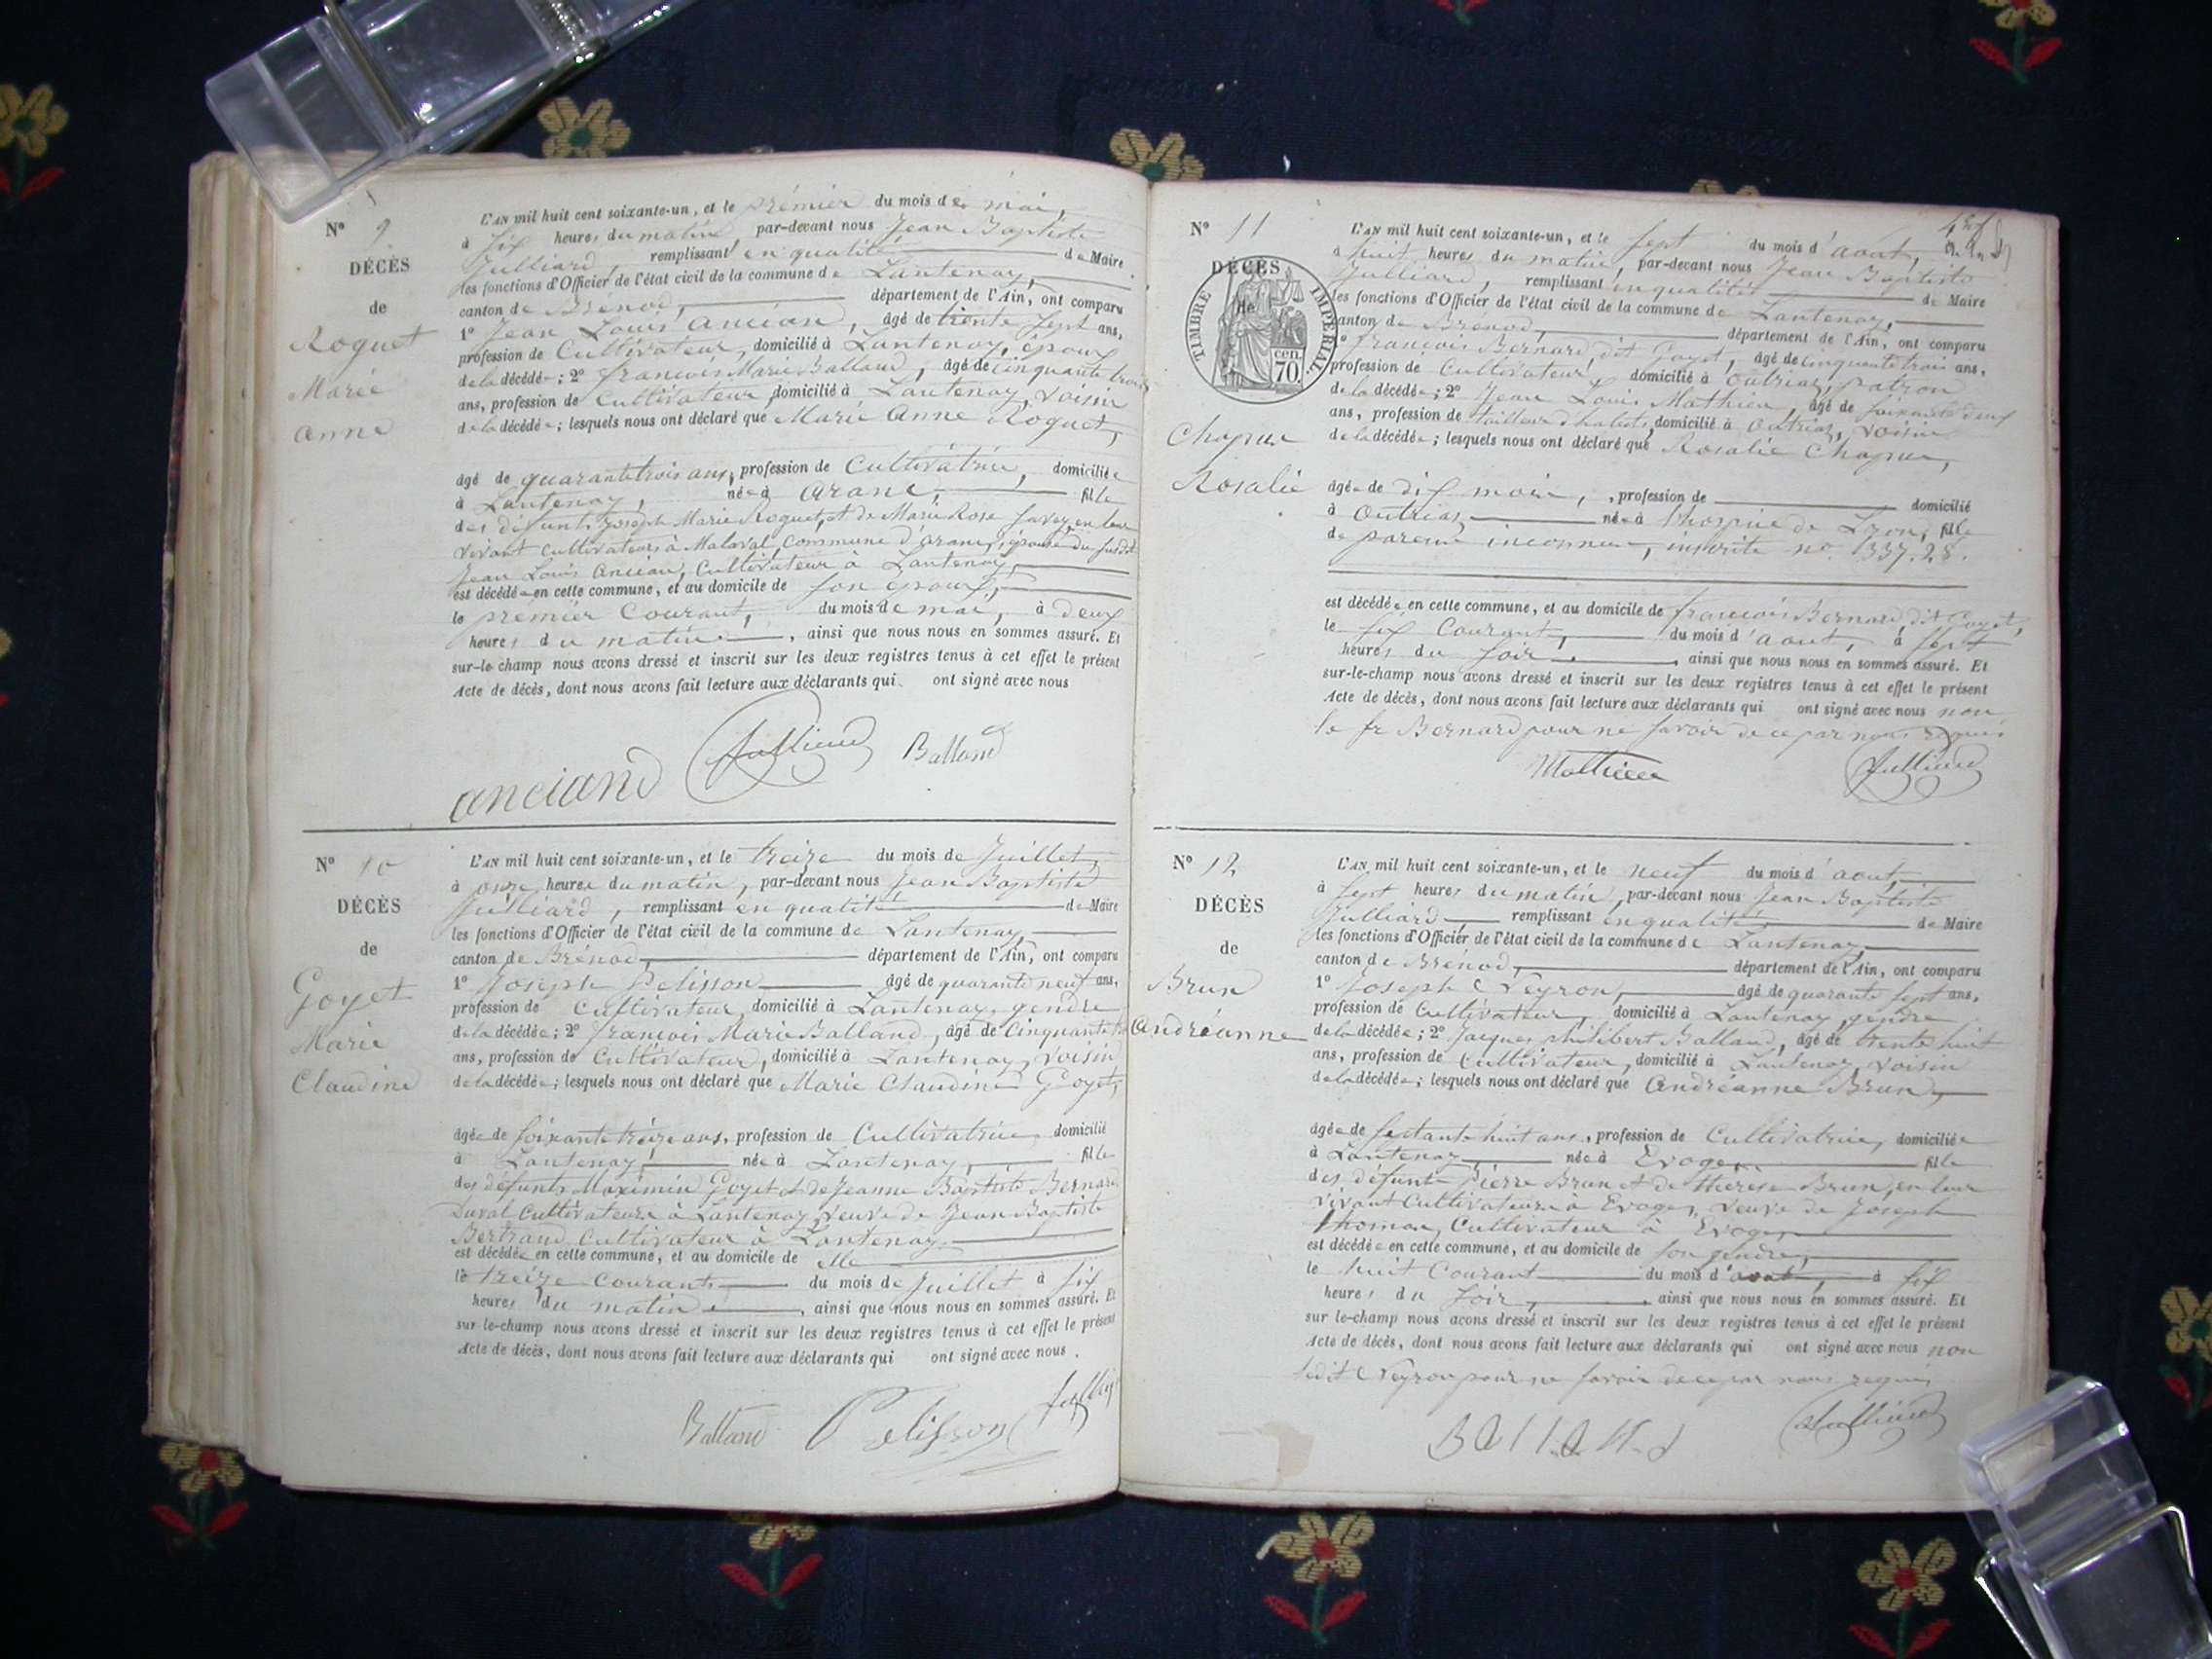 N° 9
DÉCÈS
de
Roguet
Marie
Anne
L'AN mil huit cent soixante-un, et le premier du mois de mai,
à six heures du matin par-devant nous Jean Baptiste
Julliard, remplissant en qualité de Maire
les fonctions d'Officier de l'état civil de la commune de Lantenay,
canton de Brénod, département de l'Ain, ont comparu
1° Jean Louis Ancian, âgé de trente sept ans,
profession de Cultivateur, domicilié à Lantenay, époux
de la décédée; 2° françois Marie Balland, âgé de cinquante trois
ans, profession de Cultivateur, domicilié à Lantenay, voisin
de la décédée; lesquels nous ont déclaré que Marie Anne Roguet,
âgé de quarante trois ans, profession de Cultivatrice, domiciliée
à Lantenay, née à Aranc, fille
des défunts Joseph Marie Roguet, et de Marie Rose Savey, en leur
vivant cultivateurs à Malaval, commune d'Aranc, épouse du susdit
Jean Louis Ancian, Cultivateur à Lantenay,
est décédée en cette commune, et au domicile de son époux,
le premier Courant, du mois de mai, à deux
heures du matin, ainsi que nous nous en sommes assuré. Et
sur-le-champ nous avons dressé et inscrit sur les deux registres tenus à cet effet le présent
Acte de décès, dont nous avons fait lecture aux déclarants qui ont signé avec nous
anciand Julliard Balland
N° 10
DÉCÈS
de
Goyet
Marie
Claudine
L'AN mil huit cent soixante-un, et le treize du mois de Juillet,
à onze heures du matin, par-devant nous Jean Baptiste
Julliard, remplissant en qualité de Maire
les fonctions d'Officier de l'état civil de la commune de Lantenay,
canton de Brénod, département de l'Ain, ont comparu
1° Joseph Pelisson âgé de quarante neuf ans,
profession de Cultivateur, domicilié à Lantenay, gendre
de la décédée; 2° françois Marie Balland, âgé de cinquante
ans, profession de Cultivateur, domicilié à Lantenay, voisin
de la décédée; lesquels nous ont déclaré que Marie Claudine Goyet,
âgée de soixante treize ans, profession de Cultivatrice, domicilié
à Lantenay, née à Lantenay, fille
des défunts Maximin Goyet et de Jeanne Baptiste Bernard
Duval Cultivateurs à Lantenay, veuve de Jean Baptiste
Bertrand, Cultivateur à Lantenay,
est décédée en cette commune, et au domicile de elle
le treize courant du mois de Juillet à six
heures du matin, ainsi que nous nous en sommes assuré. Et
sur le-champ nous avons dressé et inscrit sur les deux registres tenus à cet effet le présent
Acte de décès, dont nous avons fait lecture aux déclarants qui ont signé avec nous.
Balland Pelisson
N° 11
DÉCÈS
de
TIMBRE IMPERIAL
70 cen.
Chapuu
Rosalie
L'AN mil huit cent soixante-un, et le sept du mois d'aout,
à huit heures du matin, par-devant nous Jean Baptiste
Julliard, remplissant en qualité de Maire
les fonctions d'Officier de l'état civil de la commune de Lantenay,
canton de Brénod, département de l'Ain, ont comparu
1° françois Bernard, dit Goyet, âgé de cinquante trois ans,
profession de Cultivateur, domicilié à Outriaz, patron
de la décédée; 2° Jean Louis Mathieu, âgé de soixante deux
ans, profession de tailleur d'habits, domicilié à Outriaz, voisin
de la décédée; lesquels nous ont déclaré que Rosalie Chapuu,
âgée de dix mois, profession de domicilié
à Outriaz, née à l'hospice de Lyon, fille
de parens inconnus, inscrite n° 1337.28.
est décédée en cette commune, et au domicile de françois Bernard, dit Goyet,
le six Courant, du mois d'aout, à sept
heures du soir, ainsi que nous nous en sommes assuré. Et
sur-le-champ nous avons dressé et inscrit sur les deux registres tenus à cet effet le présent
Acte de décès, dont nous avons fait lecture aux déclarants qui ont signé avec nous non
le fr Bernard pour ne savoir de ce par nous requis
Mathieu Julliard
N° 12
DÉCÈS
de
Brun
Andréanne
L'AN mil huit cent soixante-un, et le neuf du mois d'aout,
à sept heures du matin, par-devant nous Jean Baptiste
Julliard remplissant en qualité de Maire
les fonctions d'Officier de l'état civil de la commune de Lantenay,
canton de Brénod, département de l'Ain, ont comparu
1° Joseph Neyron, âgé de quarante sept ans,
profession de Cultivateur, domicilié à Lantenay, gendre
de la décédée; 2° Jacques philibert Balland, âgé de trente huit
ans, profession de Cultivateur, domicilié à Lantenay, voisin
de la décédée; lesquels nous ont déclaré que Andréanne Brun,
âgée de septante huit ans, profession de Cultivatrice, domiciliée
à Lantenay, née à Evoges, fille
des défunts Pierre Brun et de thérèse Brun, en leur
vivant Cultivateurs à Evoges, veuve de Joseph
thomas, Cultivateur à Evoges,
est décédée en cette commune, et au domicile de son gendre,
le huit Courant du mois d'aout, à six
heures du soir, ainsi que nous nous en sommes assuré. Et
sur le-champ nous avons dressé et inscrit sur les deux registres tenus à cet effet le présent
Acte de décès, dont nous avons fait lecture aux déclarants qui ont signé avec nous non
ledit Neyron pour ne savoir de ce par nous requis
Balland Julliard